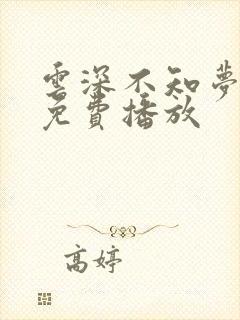 雲深不知夢
免費播放
高婷